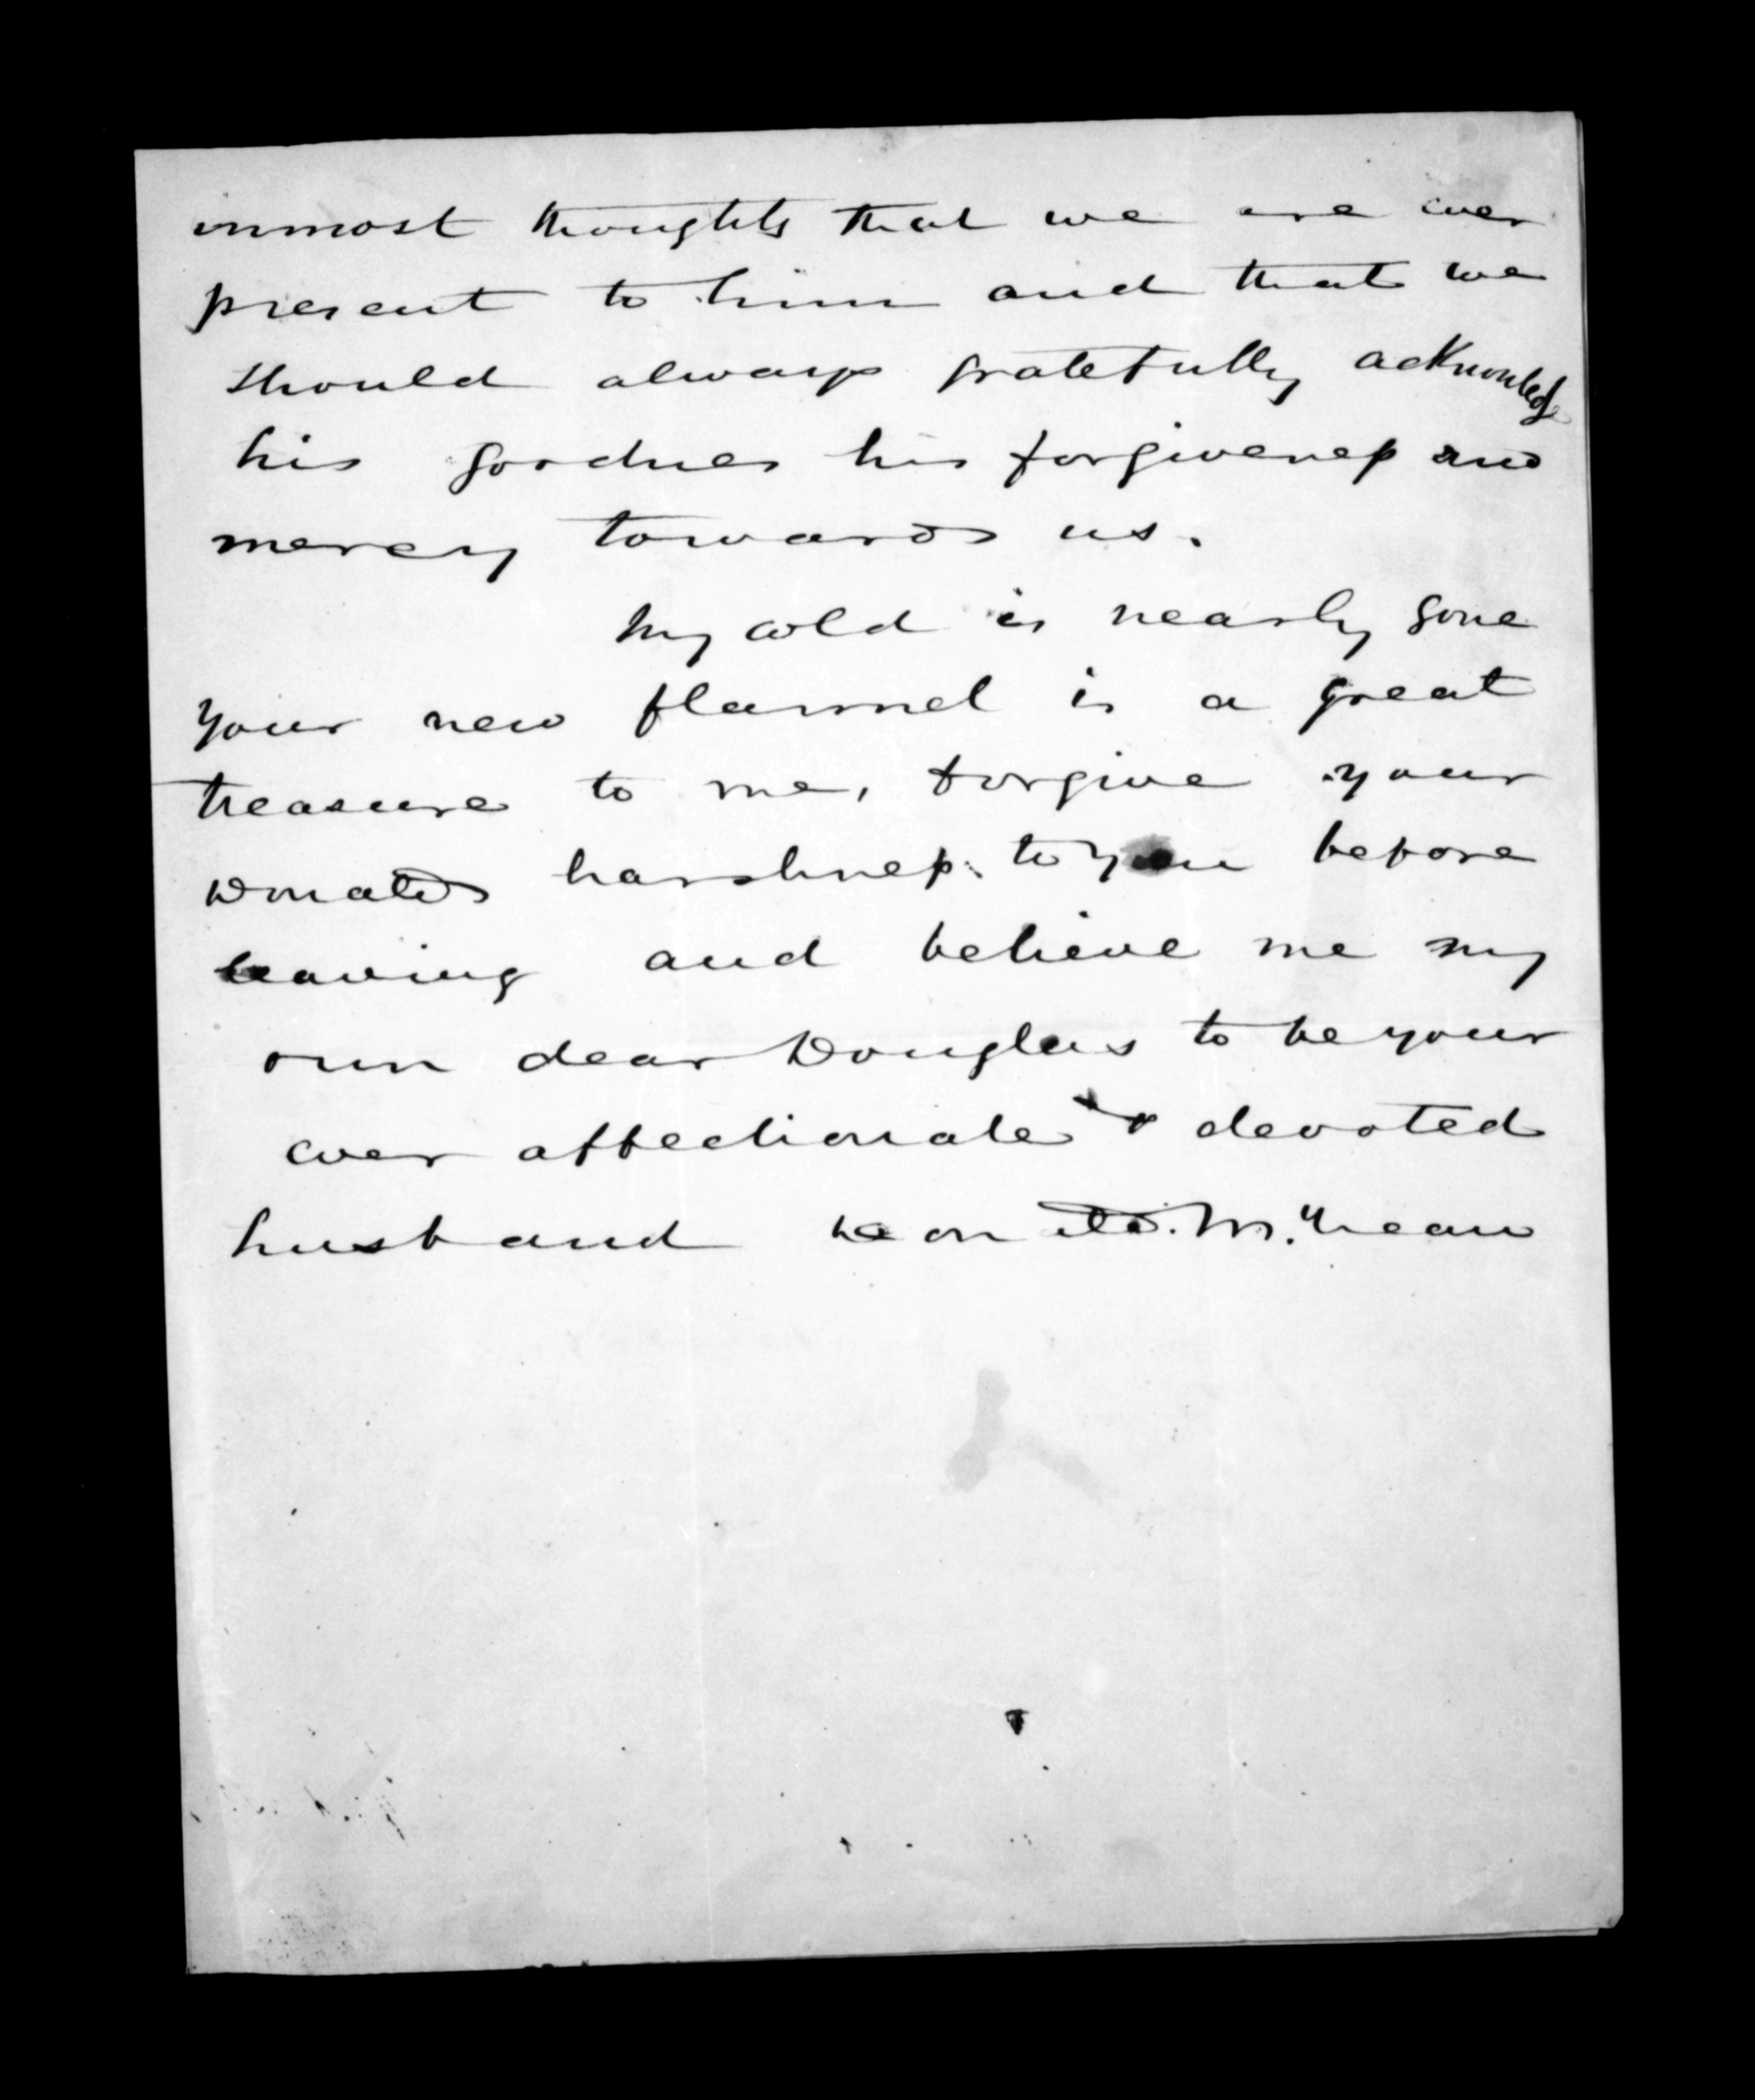 inmost thoughts that we are ever
present to him and that we
should always gratefully acknowledge
his goodness his forgiveness and
mercy towards us.
My cold is nearly gone
your new flannel is a great
treasure to me, forgive your
Donalds harshness to you before
leaving and believe me my
own dear Douglas to be your
ever affectionate & devoted
husband Donald McLean